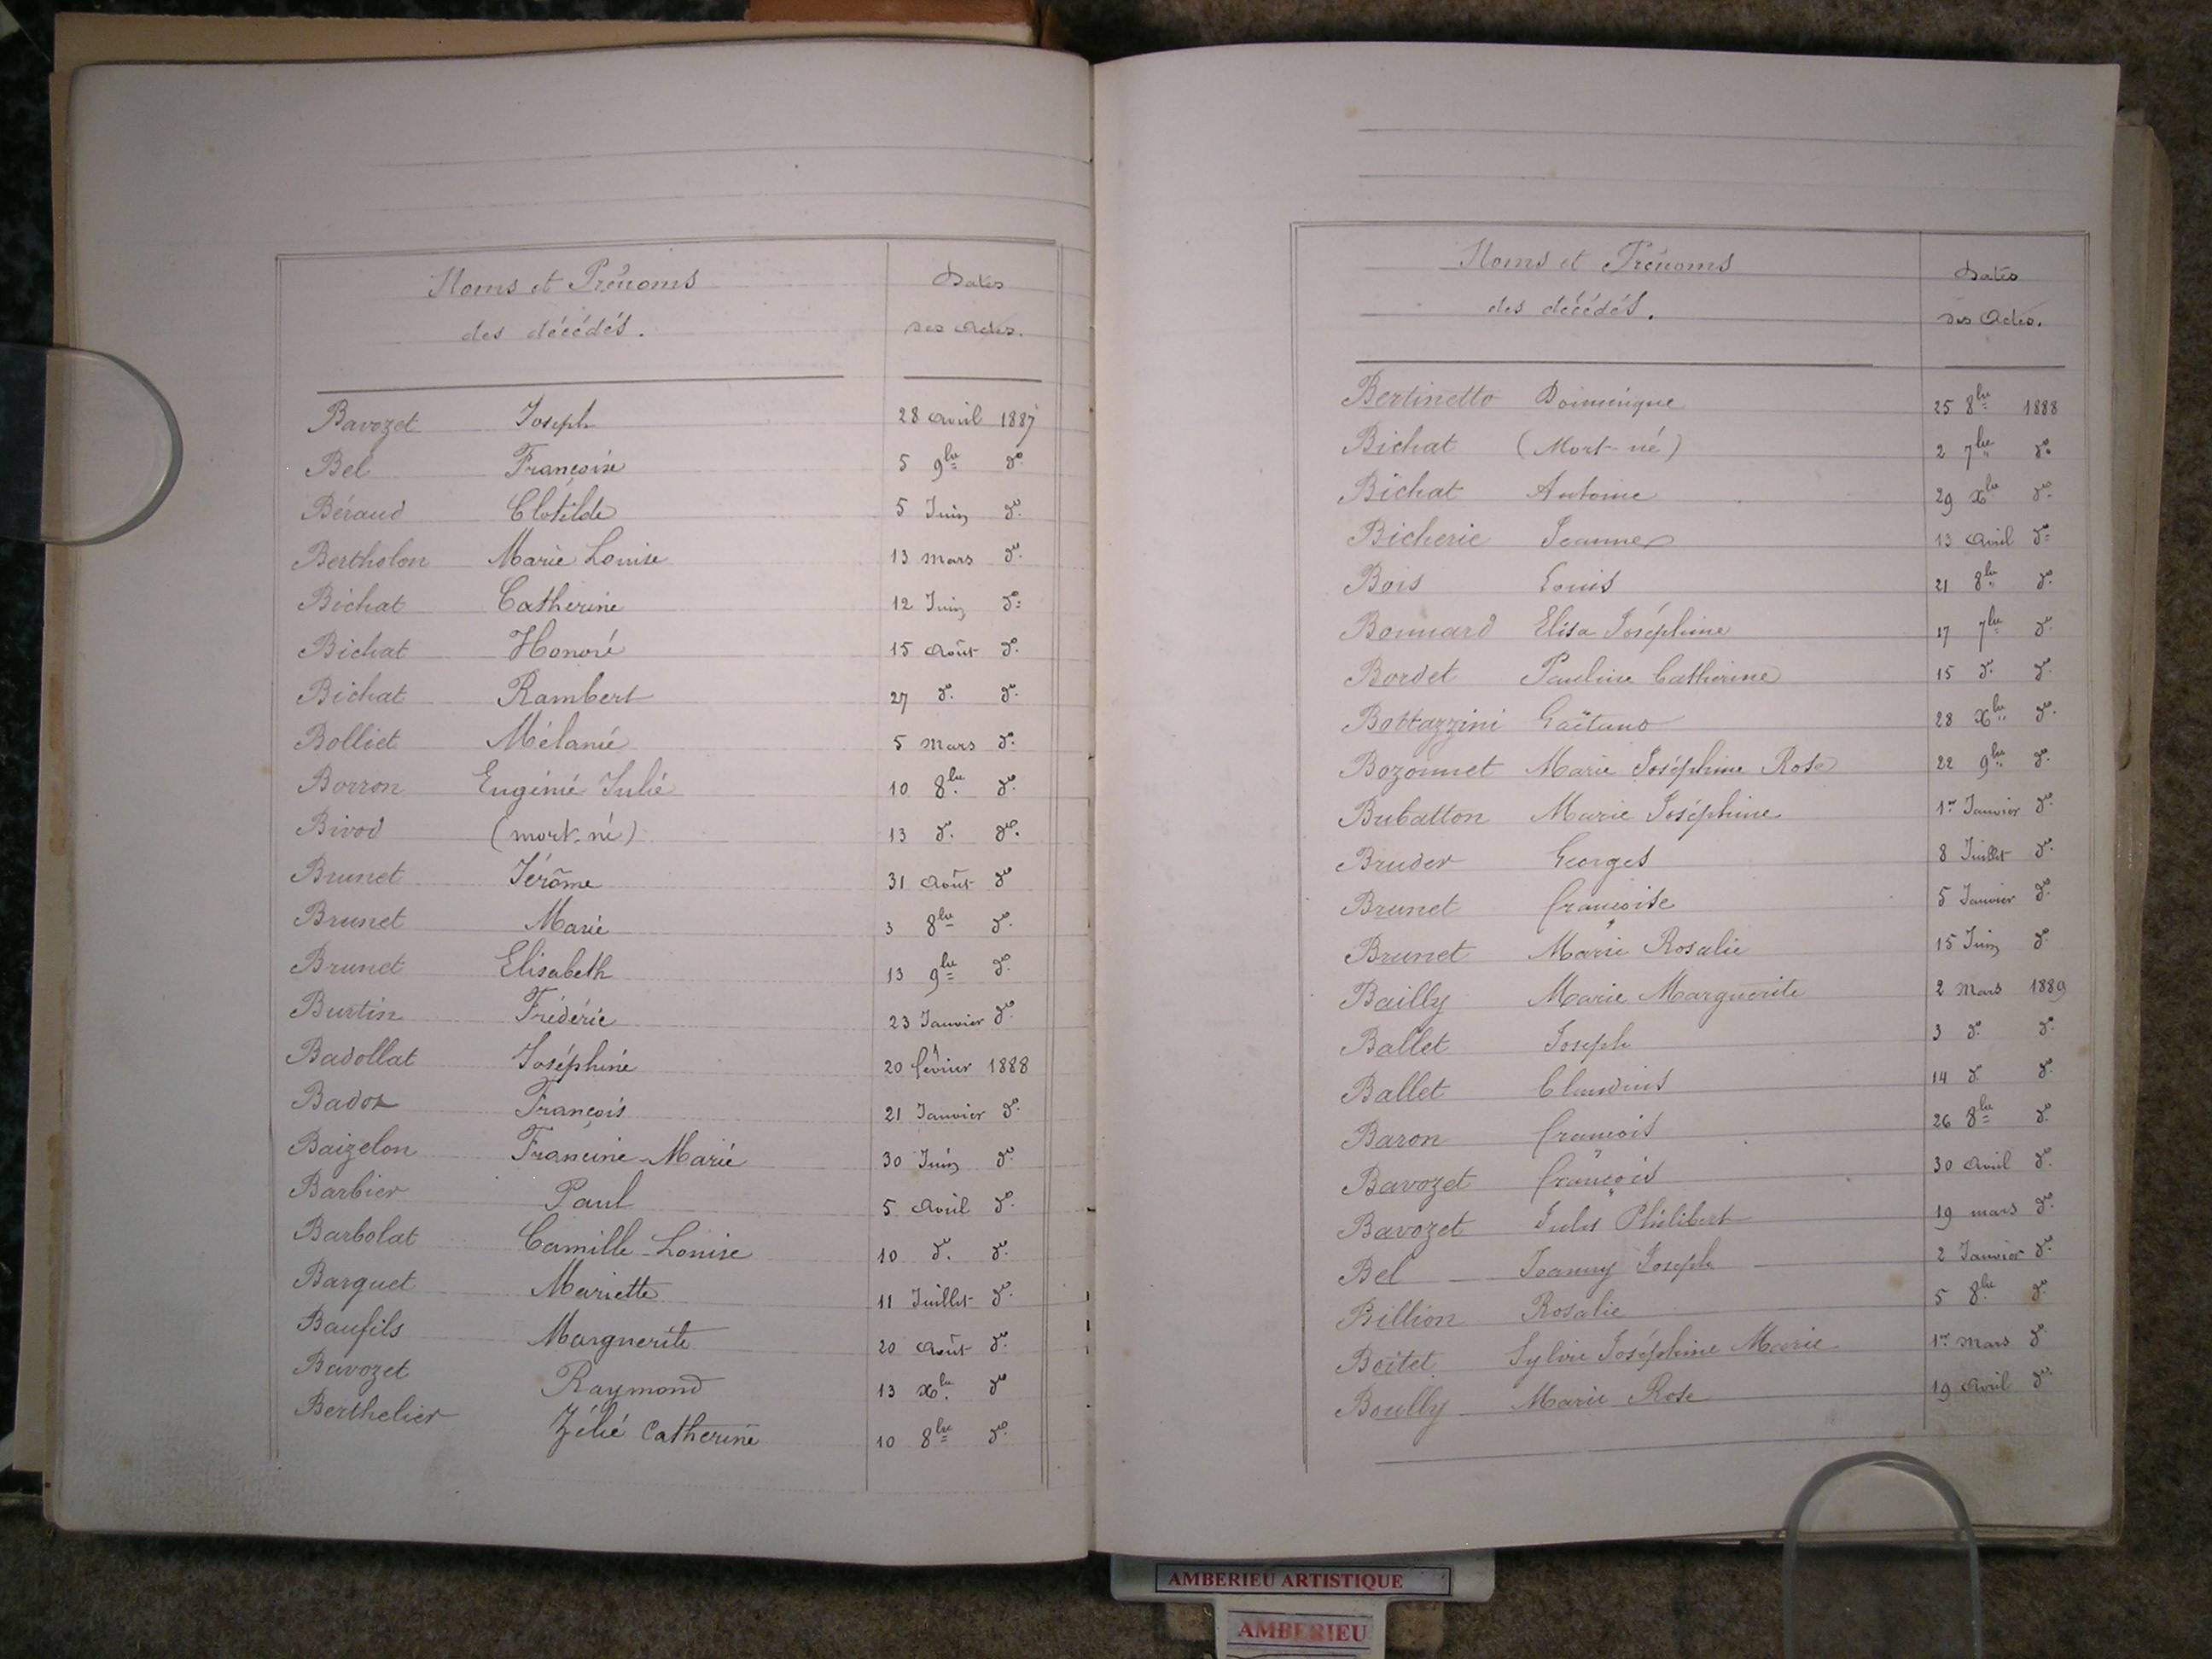 Noms et Prénoms Dates
des décédés. des Actes.
Bavozet Joseph 28 avril 1887
Bel Françoise 5 9bre do
Béraud Clotilde 5 Juin do
Bertholon Marie Louise 13 mars do
Bichat Catherine 12 Juin do
Bichat Honoré 15 Août do
Bichat Rambert 27 do do
Bolliet Mélanie 5 mars do
Borron Eugénie Julie 10 8bre do
Bivod (mort-né) 13 do do
Brunet Jérôme 31 Août do
Brunet Marie 3 8bre do
Brunet Elisabeth 13 9bre do
Burtin Frédéric 23 Janvier do
Badollat Joséphine 20 février 1888
Bador François 21 Janvier do
Baizelon Francine-Marie 30 Juin do
Barbier Paul 5 Avril do
Barbolat Camille-Louise 10 do do
Barquet Mariette 11 Juillet do
Baufils Marguerite 20 Août do
Bavozet Raymond 13 Xbre do
Berthelier Zélie Catherine 10 8bre do
Noms et Prénoms Dates
des décédés. des Actes.
Bertinetto Dominique 25 8bre 1888
Bichat (Mort-né) 2 7bre do
Bichat Antoine 29 Xbre do
Bicherie Jeanne 13 Avril do
Bois Louis 21 8bre do
Bonnard Elisa Joséphine 17 7bre do
Bordet Pauline Catherine 15 do do
Bottazzini Gaëtano 28 Xbre do
Bozonnet Marie Joséphine Rose 22 9bre do
Bubatton Marie Joséphine 1er Janvier do
Bruder Georges 8 Juillet do
Brunet françoise 5 Janvier do
Brunet Marie Rosalie 15 Juin do
Bailly Marie Marguerite 2 Mars 1889
Ballet Joseph 3 do do
Ballet Claudius 14 do do
Baron françois 26 8bre do
Bavozet françois 30 Avril do
Bavozet Jules Philibert 19 mars do
Bel Joanny Joseph 2 Janvier do
Billion Rosalie 5 8bre do
Boitet Sylvie Joséphine Marie 1er Mars do
Boully Marie Rose 19 Avril do
AMBERIEU ARTISTIQUE
AMBERIEU